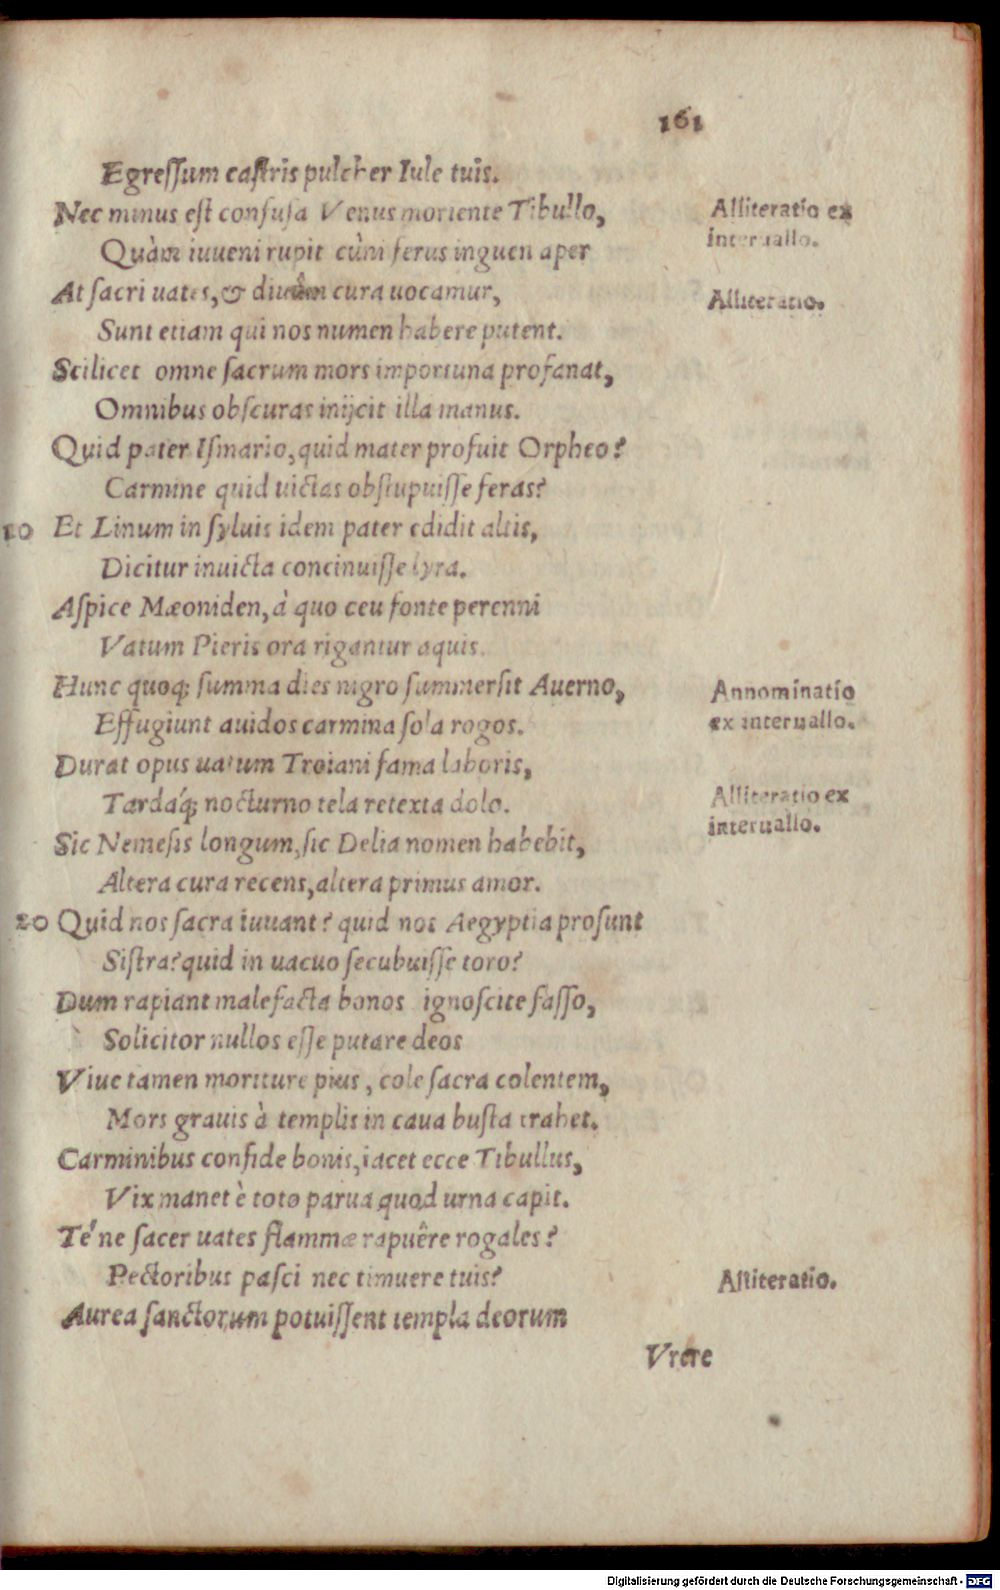 161
Egressum castris pulcher Iule tuis.
Nec minus est confusa Venus moriente Tibullo,
Quàm iuueni rupit cùm ferus inguen aper
At sacri uates, & diuûm cura uocamur,
Sunt etiam qui nos numen habere putent.
Scilicet omne sacrum mors importuna profanat,
Omnibus obscuras inijcit illa manus.
Quid pater Ismario, quid mater profuit Orpheo?
Carmine quid uictas obstupuisse feras?
10 Et Linum in syluis idem pater edidit altis,
Dicitur inuicta concinuisse lyra.
Aspice Mæoniden, à quo ceu fonte perenni
Vatum Pieris ora rigantur aquis.
Hunc quoq; summa dies nigro summersit Auerno,
Effugiunt auidos carmina sola rogos.
Durat opus uatum Troiani fama laboris,
Tardáq; nocturno tela retexta dolo.
Sic Nemesis longum, sic Delia nomen habebit,
Altera cura recens, altera primus amor.
20 Quid nos sacra iuuant? quid nos Aegyptia prosunt
Sistra? quid in uacuo secubuisse toro?
Dum rapiant malefacta bonos ignoscite fasso,
Solicitor nullos esse putare deos
Viue tamen moriture pius, cole sacra colentem,
Mors grauis à templis in caua busta trahet.
Carminibus confide bonis, iacet ecce Tibullus,
Vix manet è toto parua quod urna capit.
Té ne sacer uates flammæ rapuêre rogales?
Pectoribus pasci nec timuere tuis?
Aurea sanctorum potuissent templa deorum
Vrere
Alliteratio ex
interuallo.
Alliteratio.
Annominatio
ex interuallo.
Alliteratio ex
interuallo.
Alliteratio.
Digitalisierung gefördert durch die Deutsche Forschungsgemeinschaft - DFG